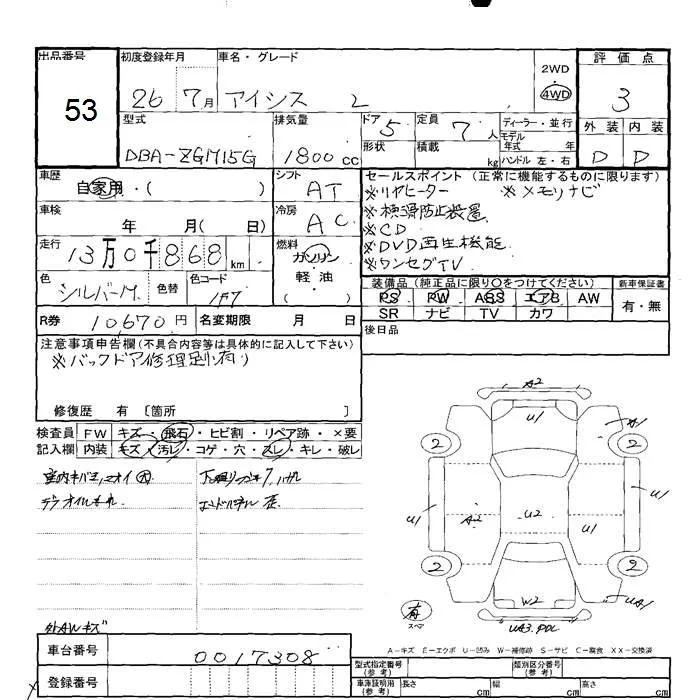 出品番号 初度登録年月 車名・グレード 評価点
53
26 7月 アイシス L
2WD
4WD
3
型式 排気量 ドア 5 定員 7人 ディーラー・並行 外装 内装
モデル年式 年
DBA-ZGM15G 1800cc 形状 積載 kg ハンドル 左・右 D D
車歴 シフト セールスポイント (正常に機能するものに限ります)
自家用・( ) AT ※リヤヒーター ※メモリナビ
車検 冷房 ※横滑防止装置
年 月( 日) AC ※CD
走行 燃料 ※DVD再生機能
13万0千868km ガソリン ※ワンセグTV
色 色替 色コード 軽油 装備品 (純正品に限り○をつけてください) 新車保証書
シルバーM 1F7 ( ) PS PW ABS エアB AW 有・無
SR ナビ TV カワ
R券 10,670円 名変期限 月 日 後日品
注意事項申告欄(不具合内容等は具体的に記入して下さい)
※バックドア修理跡有り
修復歴 有 〔箇所 〕
検査員 FW キズ・飛石・ヒビ割・リペア跡・×要
記入欄 内装 キズ・汚レ・コゲ・穴・スレ・キレ・破レ
A2
U1 A1
2 2
U1 A2 U2 U1 U1
2 2
W2 UA1
有
スペア
外AWキズ
A-キズ E-エクボ U-凹み W-補修跡 S-サビ C-腐食 XX-交換済
車台番号 0017308
型式指定番号(参考) 類別区分番号(参考)
登録番号 車庫証明用(参考) 長さ cm 幅 cm 高さ cm